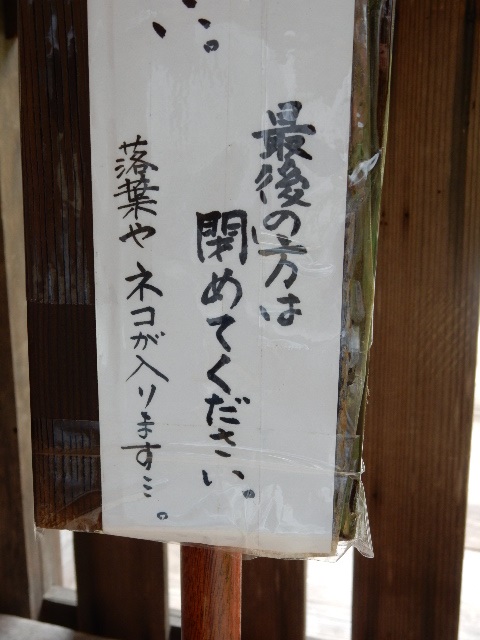 い。
最後の方は
閉めてください。
落葉や ネコが入ります〻。